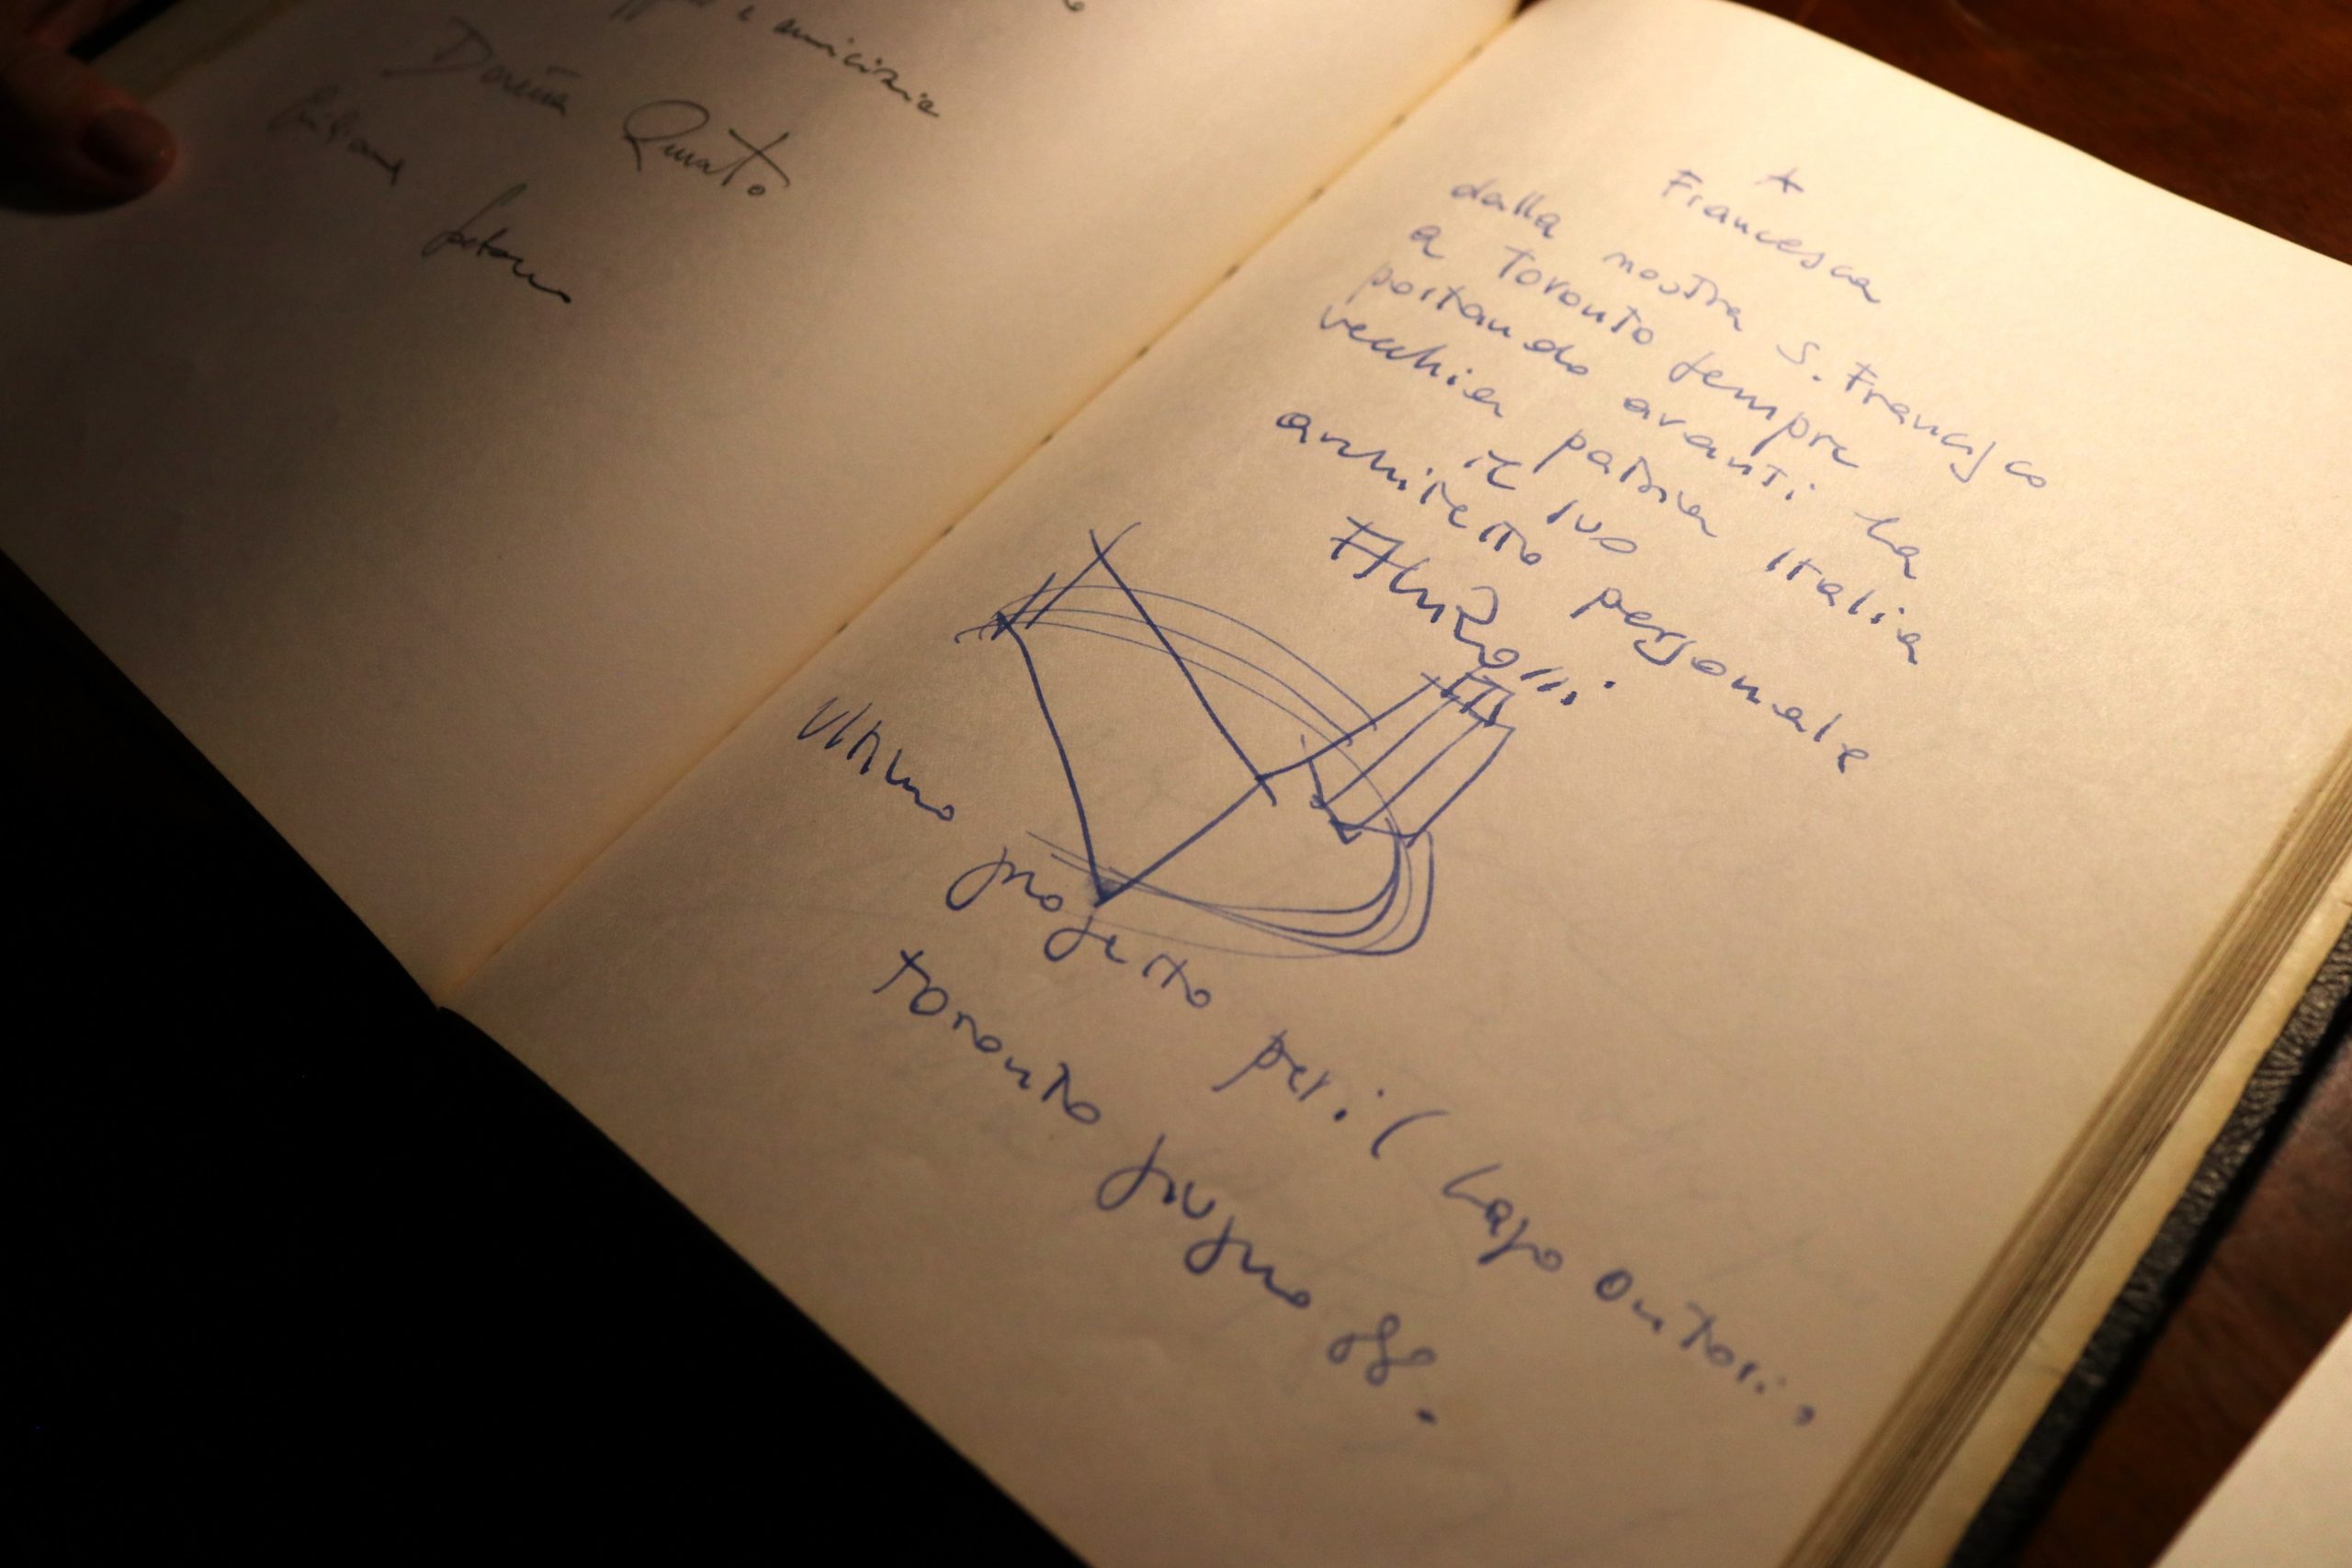 e amicizia
Renato
A
Francesca
dalla nostra S. Francisco
a Toronto sempre
portando avanti la
vecchia patria Italia
il tuo
architetto personale
Ultimo progetto per il Lago Ontario,
Toronto giugno